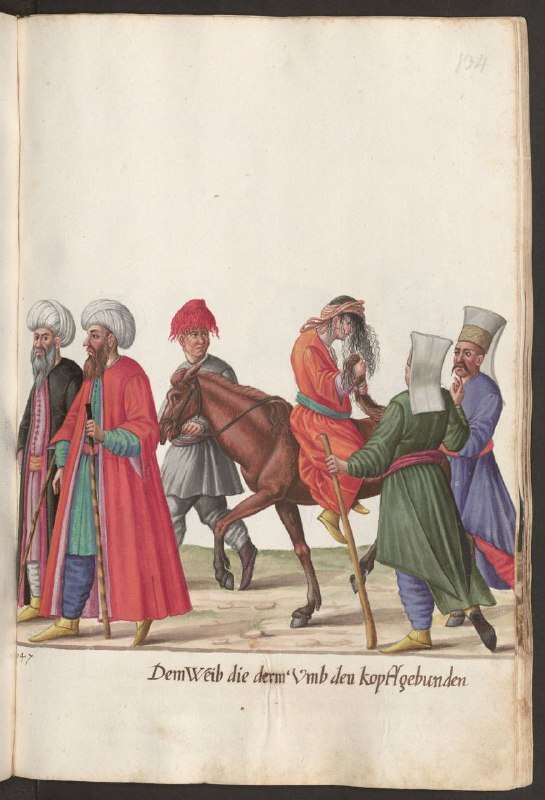 134
47
Dem Weib die derm Vmb den kopff gebunden